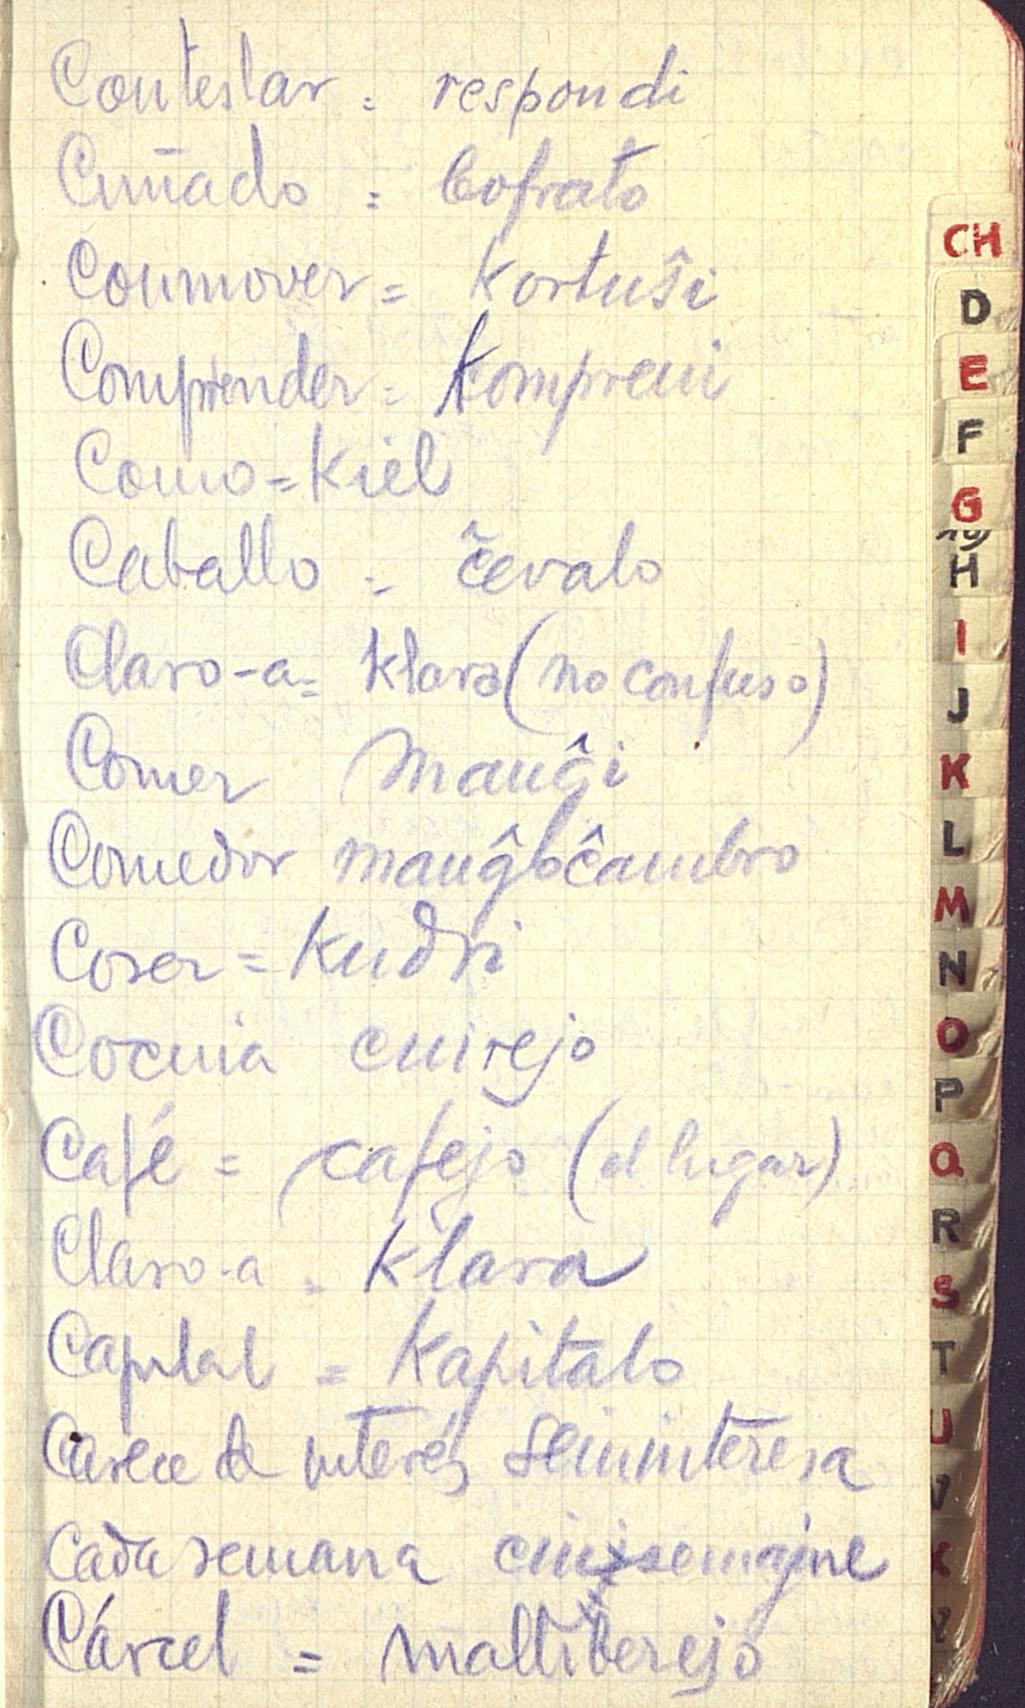 Contestar = respondi
Cuñado = bofrato
Conmover = kortuŝi
Comprender = kompreni
Como = kiel
Caballo = ĉevalo
Claro-a = klara (no confuso)
Comer manĝi
Comedor manĝoĉambro
Coser = kudri
Cocina cuirejo
Café = cafejo (el lugar)
Claro-a = klara
Capital = kapitalo
Carece de interés seninteresa
Cada semana semajne
Cárcel = malliberejo
CH
D
E
F
G
H
I
J
K
L
M
N
O
P
Q
R
S
T
U
V
X
Z